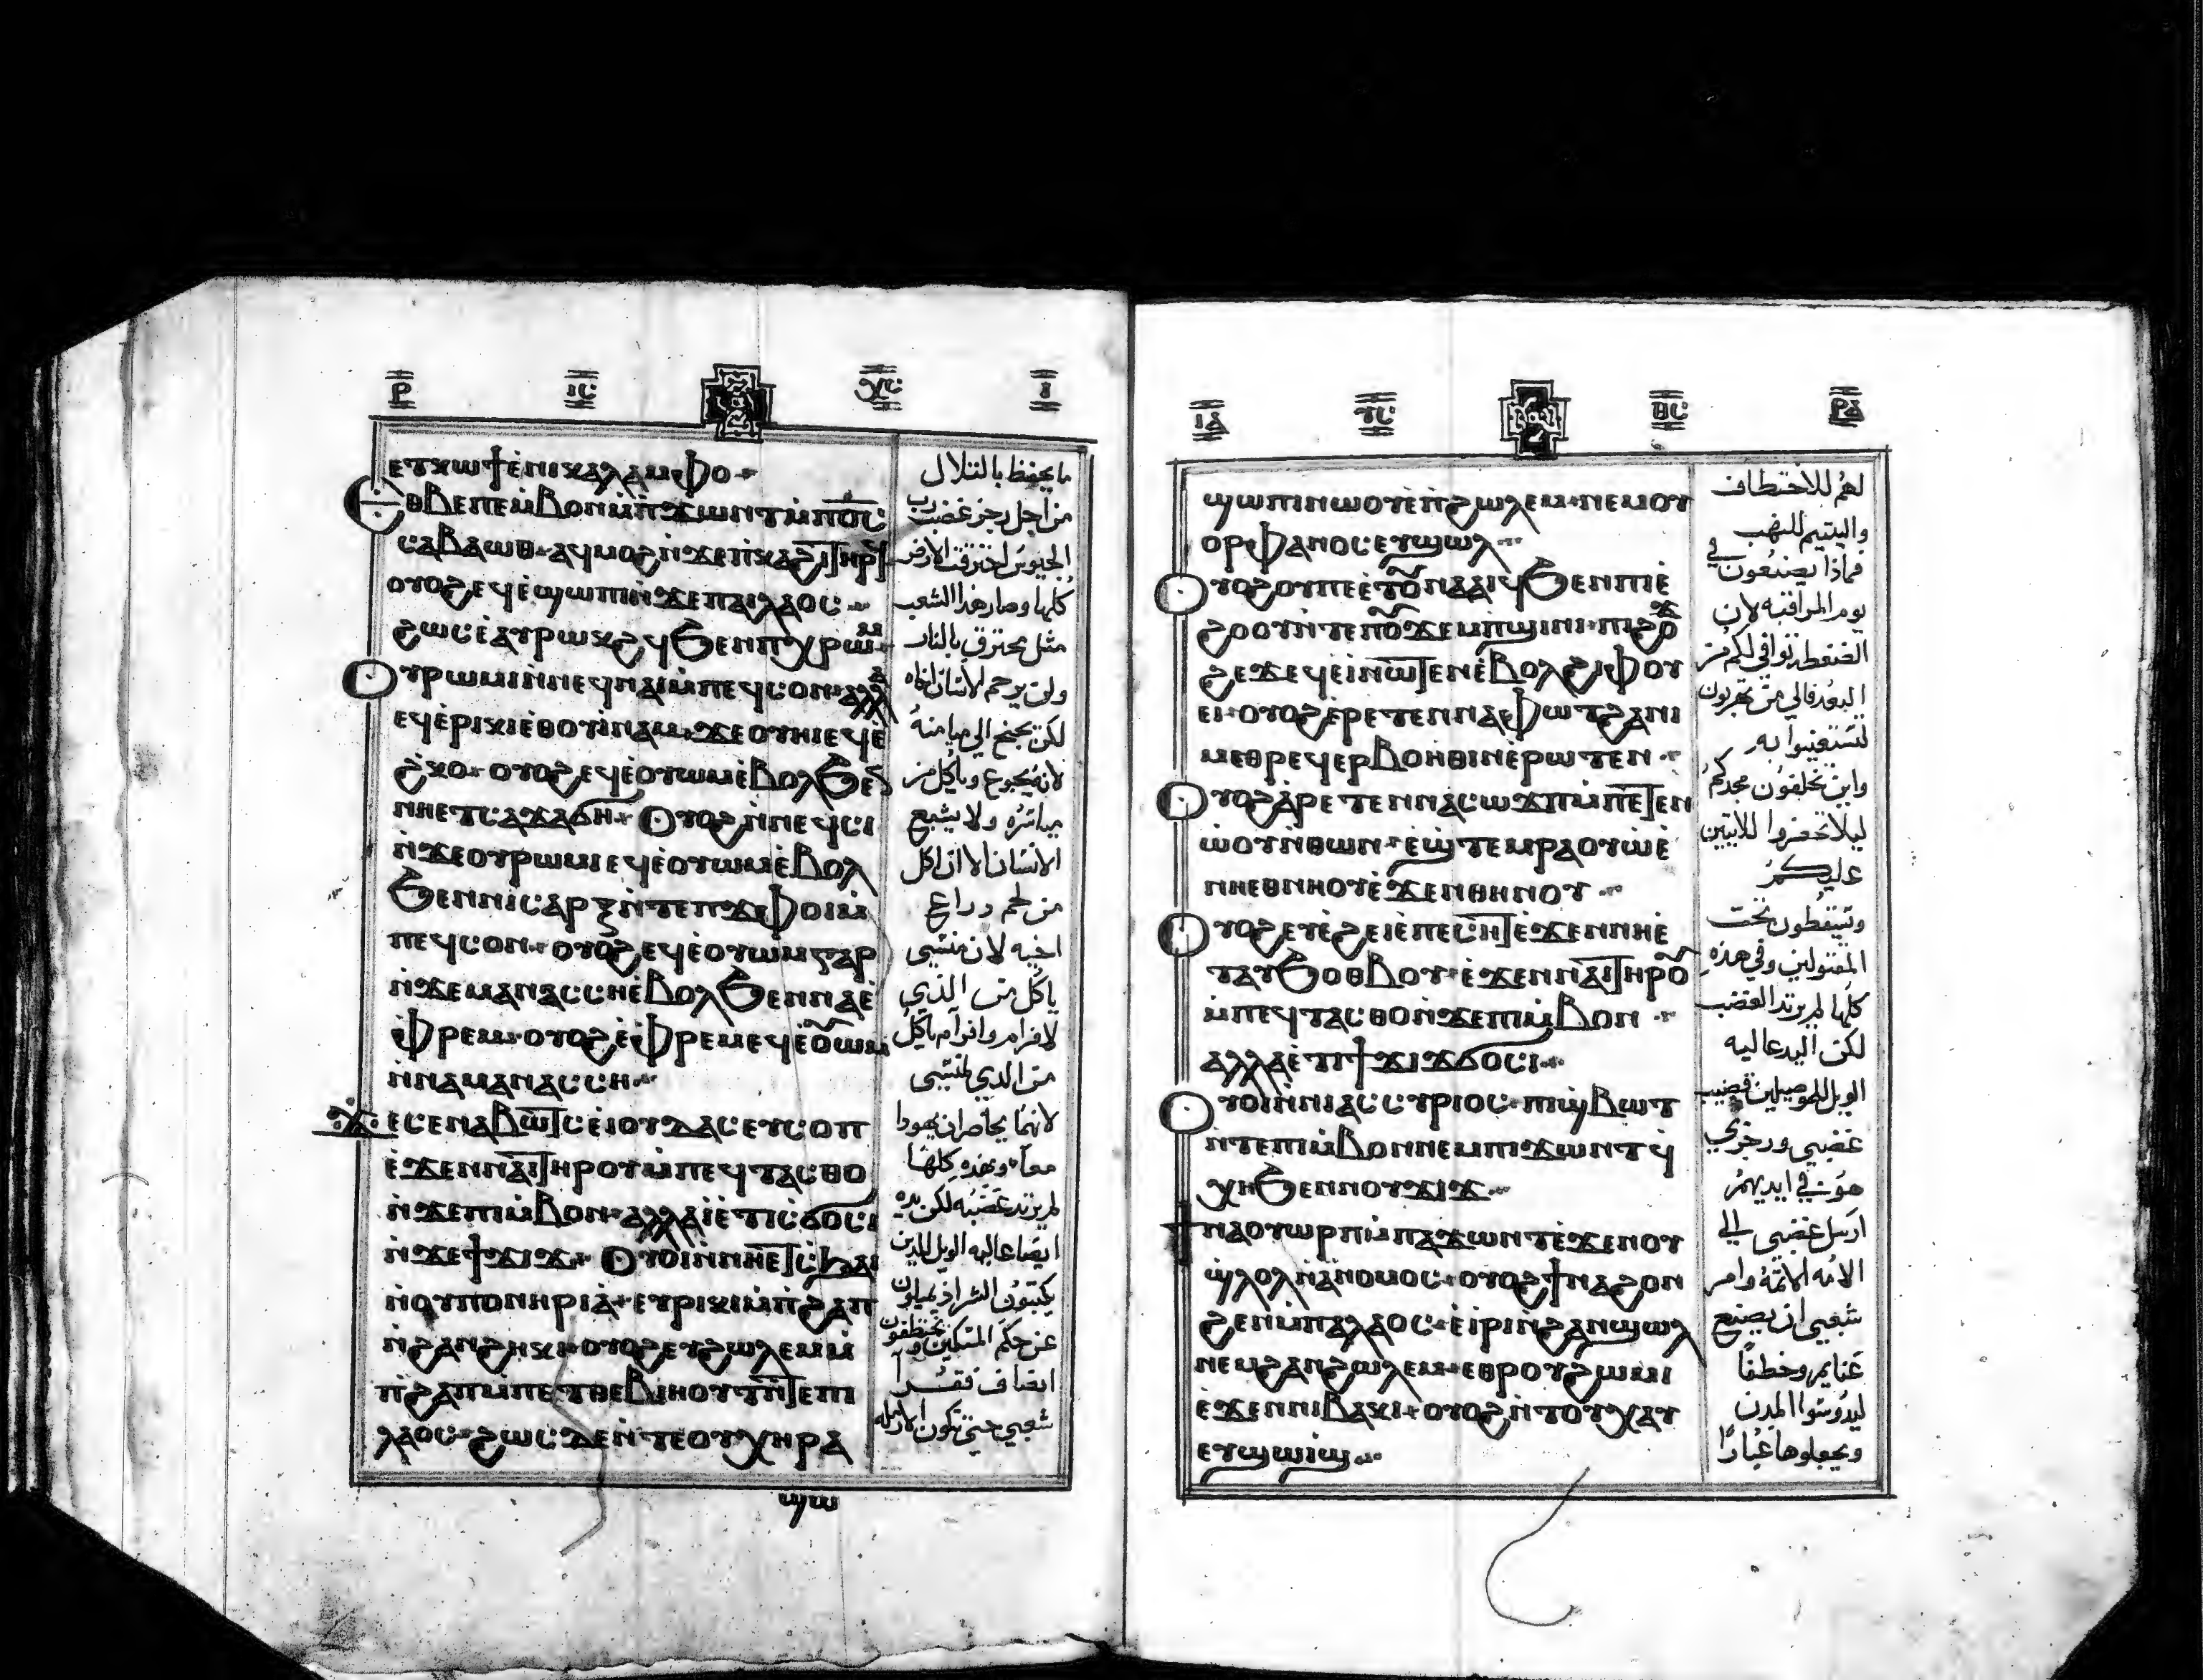 ⲣ ⲓⲥ ⲭⲥ ⲓ
ⲉⲧⲭⲱϯⲉ̀ⲛⲓⲕⲁⲗⲁⲙⲫⲟ
ⲉⲑⲃⲉⲡⲉⲙ̀ⲃⲟⲛⲙ̀ⲡ̀ϫⲱⲛⲧⲙ̀ⲡⲟ̅ⲥ̅
ⲥⲁⲃⲁⲱⲑ ⲁϥⲙⲟϩⲛ̀ϫⲉⲡ̀ⲕⲁϩⲓⲧⲏⲣϥ
ⲟⲩⲟϩⲉϥⲉ̀ϣⲱⲡⲓⲛ̀ϫⲉⲡⲁⲓⲗⲁⲟⲥ
ϩⲱⲥⲉ̀ⲁⲩⲣⲱⲕϩϥϧⲉⲛⲡⲓⲭⲣⲱⲙ
ⲟⲩⲣⲱⲙⲓⲛ̀ⲛⲉϥⲛⲁⲓⲙ̀ⲡⲉϥⲥⲟⲛ ⲁⲗⲗⲁ
ⲉϥⲉ̀ⲣⲓⲕⲓⲉ̀ⲑⲟⲩⲓ̀ⲛⲁⲙ ϫⲉⲟⲩⲏⲓⲉϥⲉ̀
ϩ̀ⲕⲟ ⲟⲩⲟϩⲉϥⲉ̀ⲟⲩⲱⲙⲉ̀ⲃⲟⲗϧⲉⲛ
ⲛⲏⲉⲧⲥⲁϫⲁϭⲏ ⲟⲩⲟϩⲛ̀ⲛⲉϥⲥⲓ
ⲛ̀ϫⲉⲟⲩⲣⲱⲙⲓⲉϥⲉ̀ⲟⲩⲱⲙⲉ̀ⲃⲟⲗ
ϧⲉⲛⲛⲓⲥⲁⲣⲝⲛ̀ⲧⲉⲡϫⲫⲟⲓⲙ̀
ⲡⲉϥⲥⲟⲛ ⲟⲩⲟϩⲉϥⲉ̀ⲟⲩⲱⲙⲅⲁⲣ
ⲛ̀ϫⲉⲙⲁⲛⲁⲥⲥⲏⲉ̀ⲃⲟⲗϧⲉⲛⲛⲁⲉ̀
ⲫⲣⲉⲙ ⲟⲩⲟϩⲉ̀ⲫⲣⲉⲙⲉϥⲉ̀ⲟⲱⲙ
ⲛ̀ⲛⲁⲙⲁⲛⲁⲥⲥⲏ
ϫⲉⲥⲉⲛⲁⲃⲱⲧⲥⲉ̀ⲓⲟⲩⲇⲁⲥⲉⲩⲥⲟⲡ
ⲉ̀ϫⲉⲛⲛⲁⲓⲧⲏⲣⲟⲩⲙ̀ⲡⲉϥⲧⲁⲥⲑⲟ
ⲛ̀ϫⲉⲡⲓⲙ̀ⲃⲟⲛ ⲁⲗⲗⲁⲓⲉ̀ⲧⲓⲥϭⲟⲥⲓ
ⲛ̀ϫⲉϯϫⲓϫ ⲟⲩⲟⲓⲛ̀ⲛⲏⲉⲧⲥϧⲁⲓ
ⲛ̀ⲟⲩⲡⲟⲛⲏⲣⲓⲁ̀ ⲉⲩⲣⲓⲕⲓⲙ̀ⲡ̀ϩⲁⲡ
ⲛ̀ϩⲁⲛϩⲏⲕⲓ ⲟⲩⲟϩⲉⲩϩⲱⲗⲉⲙⲙ̀
ⲡ̀ϩⲁⲡⲙ̀ⲡⲉⲧⲑⲉⲃⲓⲏⲟⲩⲧⲛ̀ⲧⲉⲡⲓ
ⲗⲁⲟⲥ ϩⲱⲥⲇⲉⲛ̀ⲧⲉⲟⲩⲭⲏⲣⲁ
ϣⲱ
ما يحفظ بالتلال
من اجل رجز غضب رب
الجيوش احترقت الارض
كلها وصار هذا الشعب
مثل محترق بالنار
ولن يرحم الانسان اخاه
لكن يجنح الي ميامنه
لانه يجوع وياكل من
مياسره ولا يشبع
الانسان الا ان اكل
من لحم دراع
اخيه لان منشي
ياكل من الذي
لافرام وافرام ياكل
من الدي لمنشي
لانهما يحاصران يهودا
معاً وبهده كلها
لم يرتد غضبه لكن يده
ايضا عاليه الويل للدين
يكتبون الشر اذ يميلون
عن حكم المسكين ويختطفون
انصاف فقراً
شعبي حتي تكون الارمله
ⲓⲁ ⲩⲥ ⲑⲥ ⲣⲁ
ϣⲱⲡⲓⲛⲱⲟⲩⲉ̀ⲡ̀ϩⲱⲗⲉⲙ ⲡⲉⲙⲟⲩ
ⲟⲣⲫⲁⲛⲟⲥⲉⲩϣⲱⲗ
ⲟⲩⲟϩⲟⲩⲡⲉⲉ̀ⲧⲟⲛⲁⲁⲓϥϧⲉⲛⲡⲓⲉ̀
ϩⲟⲟⲩⲛ̀ⲧⲉⲡⲟϫⲉⲙⲡϣⲓⲛⲓ ⲡⲓϩⲟ
ϩⲉϫⲉϥⲉ̀ⲓⲛⲱⲧⲉⲛⲉ̀ⲃⲟⲗϩⲓⲫⲟⲩ
ⲉⲓ ⲟⲩⲟϩⲉ̀ⲣⲉⲧⲉⲛⲛⲁⲫⲱⲧϩⲁⲛⲓ
ⲙⲉⲑⲣⲉϥⲉⲣⲃⲟⲏⲑⲓⲛⲉ̀ⲣⲱⲧⲉⲛ
ⲟⲩⲟϩⲁ̀ⲣⲉⲧⲉⲛⲛⲁⲥⲱϫⲡⲙ̀ⲡⲉⲧⲉⲛ
ⲱ̀ⲟⲩⲛ̀ⲑⲱⲛ ⲉ̀ϣ̀ⲧⲉⲙⲣⲁⲟⲩⲱ̀ⲉ̀
ⲛⲏⲉⲑⲛⲏⲟⲩⲉ̀ϫⲉⲛⲑⲏⲛⲟⲩ
ⲟⲩⲟϩⲉⲩⲉ̀ϩⲉⲓⲉ̀ⲡⲉⲥⲏⲧⲉ̀ϫⲉⲛⲛⲏⲉ̀
ⲧⲁⲩϧⲟⲑⲃⲟⲩ ⲉ̀ϫⲉⲛⲛⲁⲓⲧⲏⲣⲟ
ⲙ̀ⲡⲉϥⲧⲁⲥⲑⲟⲛ̀ϫⲉⲡⲓⲙ̀ⲃⲟⲛ
ⲁⲗⲗⲁⲉ̀ⲧⲓϯϫⲓϫϭⲟⲥⲓ
ⲟⲩⲟⲓⲛ̀ⲛⲓⲁⲥⲥⲩⲣⲓⲟⲥ ⲡⲓϣ̀ⲃⲱⲧ
ⲛ̀ⲧⲉⲡⲓⲙ̀ⲃⲟⲛⲛⲉⲙⲡⲓϫⲱⲛⲧϥ̀
ⲭⲏϧⲉⲛⲛⲟⲩϫⲓϫ
ϯⲛⲁⲟⲩⲱⲣⲡⲙ̀ⲡⲁϫⲱⲛⲧⲉ̀ϫⲉⲛⲟⲩ
ϣ̀ⲗⲟⲗⲛ̀ⲁ̀ⲛⲟⲙⲟⲥ ⲟⲩⲟϩϯⲛⲁϩⲟⲛ
ϩⲉⲛⲙ̀ⲡⲁⲗⲁⲟⲥ ⲉ̀ⲓ̀ⲣⲓⲛ̀ϩⲁⲛϣⲱⲗ
ⲛⲉⲙϩⲁⲛϩⲱⲗⲉⲙ ⲉⲑⲣⲟⲩϩⲱⲙⲓ
ⲉ̀ϫⲉⲛⲛⲓⲃⲁⲕⲓ ⲟⲩⲟϩⲛ̀ⲧⲟⲩⲭⲁⲩ
ⲉⲩϣⲱⲓϣ
لهم للاختطاف
واليتيم للنهب
فماذا يصنعون في
يوم المراقبه لان
الضغطه توافي لكم من
البعد فالي من تهربون
لتستغيثوا به
واين تخلفون مجدكم
ليلا تحضروا للاتيين
عليكم
وتسقطون تحت
المقتولين وفي هذه
كلها لم يرتد الغضب
لكن اليد عاليه
الويل للموصليين قضيب
غضبي ورجزي
هو في ايديهم
ارسل غضبي الي
الامه الاثمه وامر
شعبي ان يصنع
غنايم وخطفاً
ليدوسوا المدن
ويجعلوها غباراً